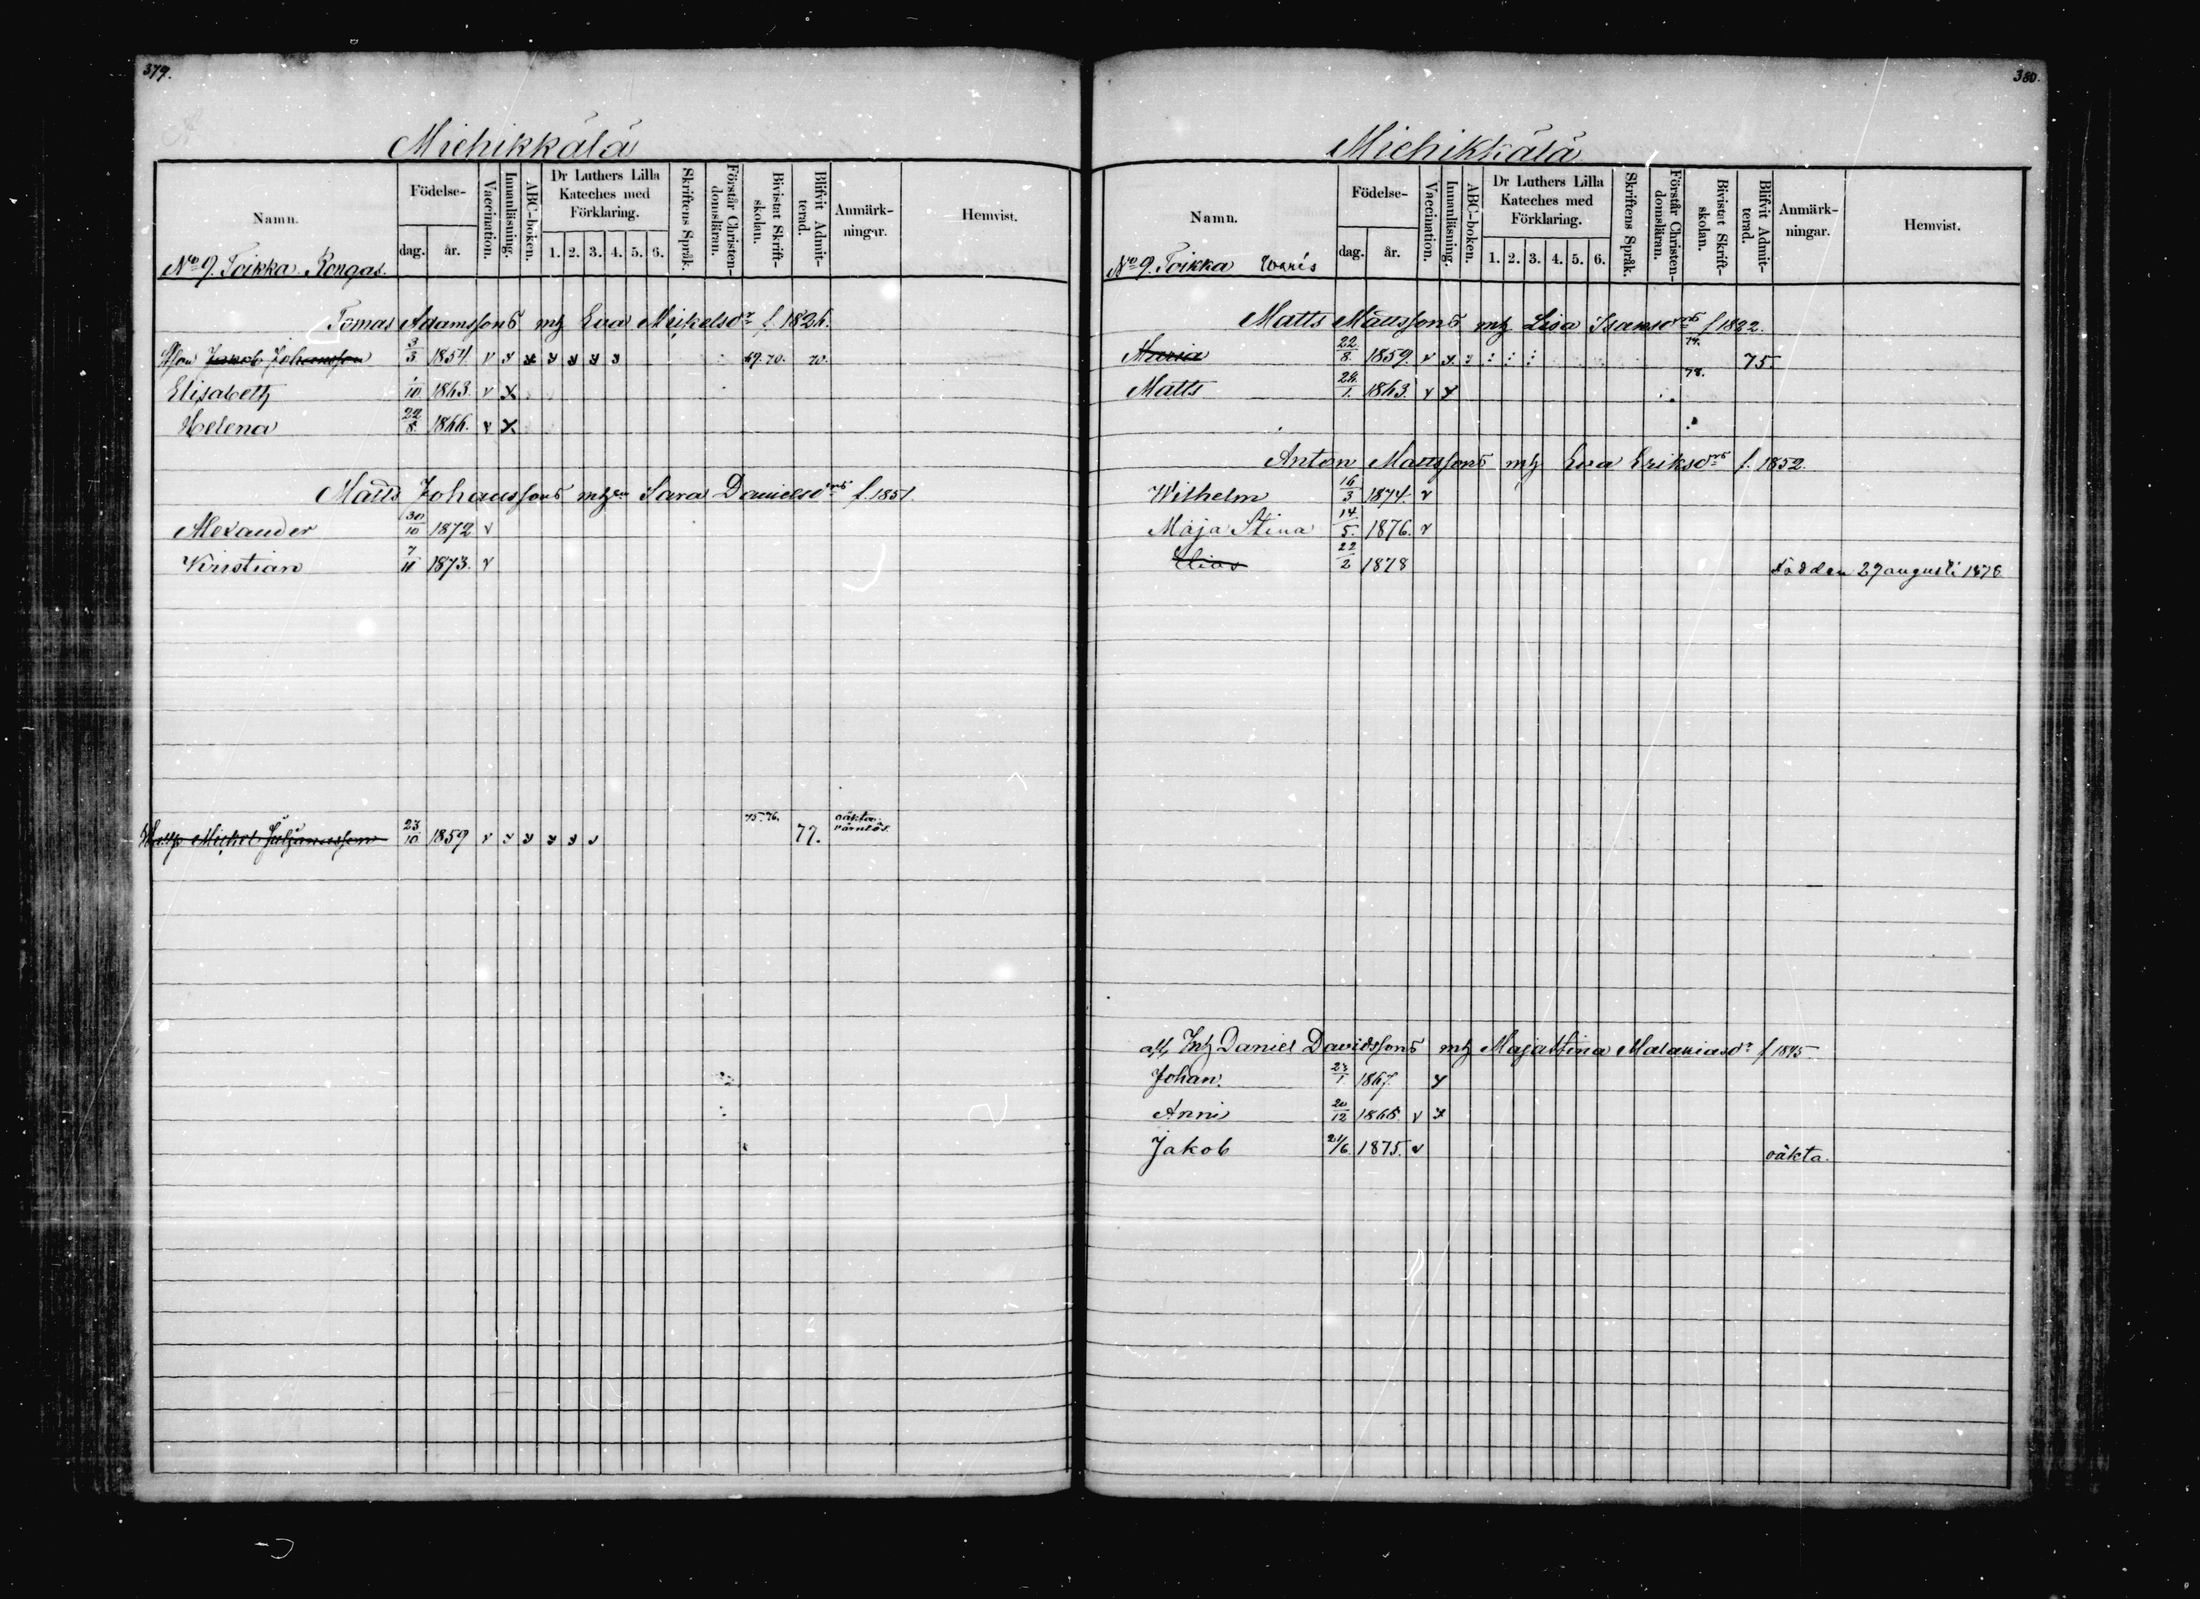 379.
Michikkälä
Namn.
Födelse-
dag.
år.
Vaccination.
Innanläsning.
ABC-boken.
Dr Luthers Lilla
Kateches med
Förklaring.
1. 2. 3. 4. 5. 6.
Skriftens Språk.
Förstår Christen-
domsläran.
Bivistat Skrift-
skolan.
Blifvit Admit-
terad.
Anmärk-
ningar.
Hemvist.
No 9. Toikka Kongas.
Tomas Adamssons mh Eva Mickelsdr f. 1826.
Jakob Johansson 3/3 1854. v y y y y y y 69.70. 70.
Elisabeth /10 1863. v x
Helena 22/8 1866. v x
Matts Johanssons mhen Sara Danielsdrs f. 1851.
Alexander 30/10 1872 v
Kristian 7/11 1873. v
Michel 23/10 1859 v y y y y v 75-76. 77. oäkta.
värnlös.
380.
Michikkälä
Namn.
Födelse-
dag.
år.
Vaccination.
Innanläsning.
ABC-boken.
Dr Luthers Lilla
Kateches med
Förklaring.
1. 2. 3. 4. 5. 6.
Skriftens Språk.
Förstår Christen-
domsläran.
Bivistat Skrift-
skolan.
Blifvit Admit-
terad.
Anmärk-
ningar.
Hemvist.
No 9. Toikka Waris
Matts Mattssons mh Lisa Isaksdrs f 1822.
Maria 22/8 1859. v y 74. 75.
Matts 24/1 1863. v y 78.
Anton Mattssons mh Eva Eriksdrs f. 1852.
Wilhelm 16/3 1874. v
Maja Stina 14/5. 1876. v
Elias 22/2 1878 död den 29 augusti 1878
Inh Daniel Davidssons mh Maja Stina Malakiasdr f 1845
Johan. 23/1 1867. y
Anni 20/12 1868. v y
Jakob 21/6. 1875. v oäkta.